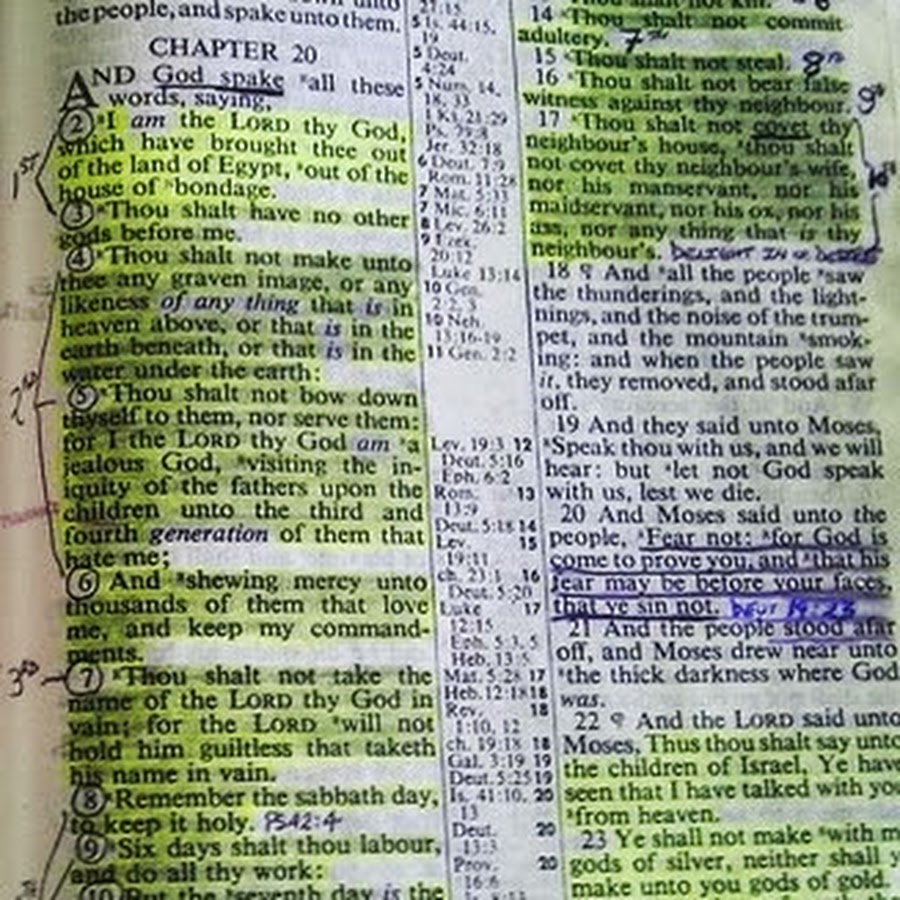 the people, and spake unto them.
CHAPTER 20
AND God spake all these
words, saying,
2 I am the LORD thy God,
which have brought thee out
of the land of Egypt, out of the
house of bondage.
3 Thou shalt have no other
gods before me.
4 Thou shalt not make unto
thee any graven image, or any
likeness of any thing that is in
heaven above, or that is in the
earth beneath, or that is in the
water under the earth:
5 Thou shalt not bow down
thyself to them, nor serve them:
for I the LORD thy God am a
jealous God, visiting the in-
iquity of the fathers upon the
children unto the third and
fourth generation of them that
hate me;
6 And shewing mercy unto
thousands of them that love
me, and keep my command-
ments.
7 Thou shalt not take the
name of the LORD thy God in
vain; for the LORD will not
hold him guiltless that taketh
his name in vain.
8 Remember the sabbath day,
to keep it holy. PS 42:4
9 Six days shalt thou labour,
and do all thy work:
10 But the seventh day is the
1ST
2ND
3RD
5 Is. 44:15,
19
5 Deut.
4:24
5 Num. 14.
18, 33
1 Ki. 21:29
Ps. 79:8
Jer. 32:18
6 Deut. 7:9
Rom. 11:28
7 Mat. 5:33
7 Mic. 6:11
8 Lev. 26:2
9 Ezek.
20:12
Luke 13:14
10 Gen.
2:2, 3
10 Neh.
13:16-19
11 Gen. 2:2
Lev. 19:3 12
Deut. 5:16
Eph. 6:2
Rom. 13
13:9
Deut. 5:18 14
Lev. 15
19:11
ch. 23:1 16
Deut. 5:20
Luke 17
12:15
Eph. 5:3, 5
Heb. 13:5
Mat. 5:28 17
Heb. 12:18 18
Rev. 18
1:10, 12
ch. 19:18 18
Gal. 3:19 19
Deut. 5:25 19
Is. 41:10, 20
13
Deut. 20
13:3
Prov. 20
16:6
14 Thou shalt not commit
adultery. 7TH
15 Thou shalt not steal. 8TH
16 Thou shalt not bear false
witness against thy neighbour. 9TH
17 Thou shalt not covet thy
neighbour's house, thou shalt
not covet thy neighbour's wife,
nor his manservant, nor his
maidservant, nor his ox, nor his
ass, nor any thing that is thy
neighbour's. DELIGHT IN or DESIRE
10TH
18 ¶ And all the people saw
the thunderings, and the light-
nings, and the noise of the trum-
pet, and the mountain smok-
ing: and when the people saw
it, they removed, and stood afar
off.
19 And they said unto Moses,
Speak thou with us, and we will
hear: but let not God speak
with us, lest we die.
20 And Moses said unto the
people, Fear not: for God is
come to prove you, and that his
fear may be before your faces,
that ye sin not.
21 And the people stood afar
off, and Moses drew near unto
the thick darkness where God
was.
22 ¶ And the LORD said unto
Moses, Thus thou shalt say unto
the children of Israel, Ye have
seen that I have talked with you
from heaven.
23 Ye shall not make with m
gods of silver, neither shall y
make unto you gods of gold.